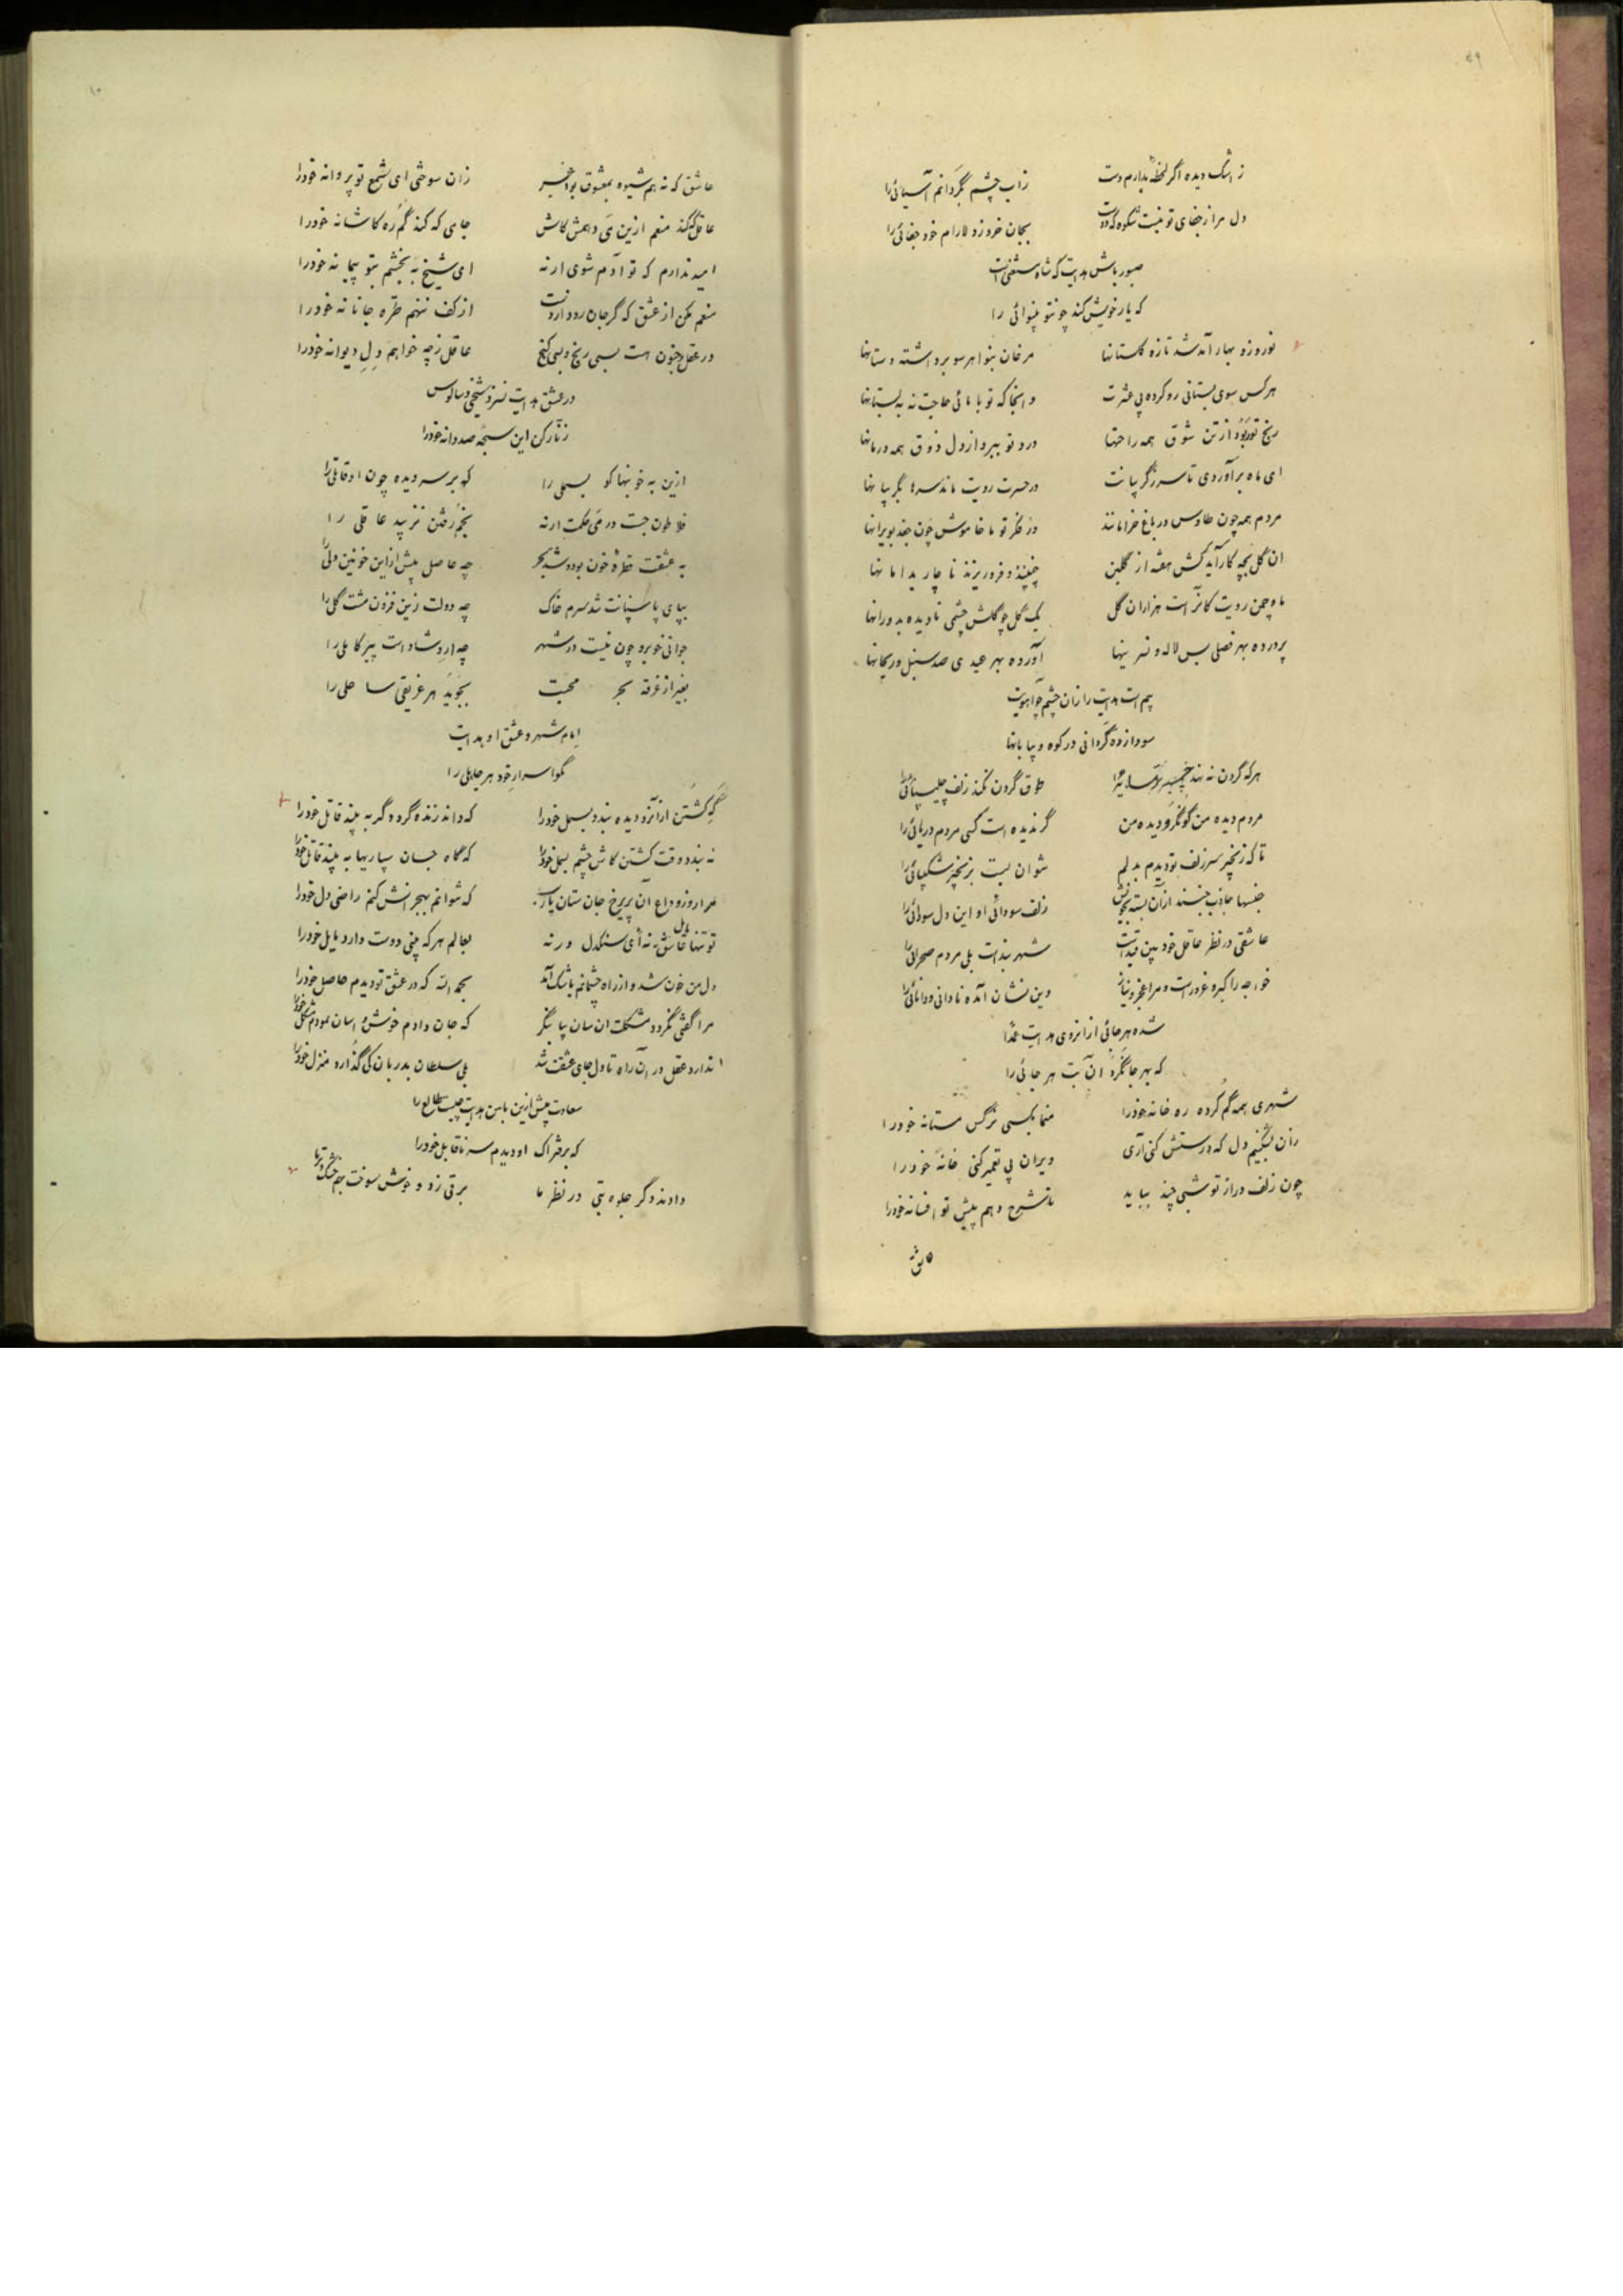 ز اشک دیده اگر لحظهٔ بدارم دست زاب چشم بگردانم آسیائی را
دل مرا ز جفای تو نیست شکوه که دوست بجان خرد ز دلارام خود جفائی را
صبور باش هدایت که شاه مستغنی است
که یار خویش کند چونتو بینوائی را
نوروز و بهار آمد شد تازه گلستانها مرغان بنوا هرسو برداشته دستانها
هرکس سوی بستانی رو کرده پی عشرت و انجا که تو با مائی حاجت نه به بستانها
رنج تو برد از تن شوق همه راحتها درد تو ببرد از دل ذوق همه درمانها
ای ماه برآوردی تا سر ز گریبانت در حسرت رویت ماند سرها بگریبانها
مردم همه چون طاوس در باغ خرامانند در فکر تو ما خاموش چون جغد بویرانها
ان گل بچه کار آید کش هفته از گلبن چینند و فرو ریزند ناچار بدامانها
ماه چمن رویت کانراست هزاران گل یک گل چو گلش چشمی نادیده بدورانها
پرورده بهر فصلی بس لاله و نسرینها آورده بهر عیدی صد سنبل و ریحانها
بیم است هدایت را زان چشم چو آهویت
سودازده گردانی در کوه و بیابانها
هرکه گردن ننهد طوق گردن نکند زلف چلیپائی را
مردم دیده من گو نگرد دیده من گر ندیده است کسی مردم دریائی را
تا که زنجیر سر زلف تو دیدم بدلم نتوان بست بزنجیر شکیبائی را
جنسها جاذب جنسند ازآن بسته بخویش زلف سودائی او این دل سودائی را
عاشقی در نظر عاقل خودبین قیداست شهر بنداست بلی مردم صحرائی را
خواجه را کبر و غرور است و مرا عجز و نیاز وین نشان آمده نادانی و دانائی را
شده هرجائی از انروی هدایت عمدا
که بهر جا نگرد آن بت هر جائی را
شهری همه گم کرده ره خانه خود را منما بکسی نرگس مستانه خود را
زان بشکنیم دل که درستش کنی آری ویران پی تعمیر کنی خانه خود را
چون زلف دراز تو شبی چند بباید تا شرح دهم پیش تو افسانه خود را
عاشق
عاشق که نه هم شیوه بمعشوق بود خیر زان سوختی ای شمع تو پروانه خود را
عاقل نکند منعم ازین می دهمش کاش جامی که کند گم ره کاشانه خود را
امید ندارم که تو آدم شوی ارنه ای شیخ ببخشم بتو پیمانه خود را
منعم مکن از عشق که گر جان رود از دست از کف ننهم طره جانانه خود را
در عقل و جنون هست بسی رنج و بسی گنج عاقل ز چه خواهم دل دیوانه خود را
در عشق هدایت نسزد شیخی و سالوس
زنار کن این سبحه صد دانه خود را
ازین به خونبها کو بسملی را که بر سر دیده چون او قاتلی را
فلاطون جست در می حکمت ارنه بخم رفتن نزیبد عاقلی را
به عشقت قطرهٔ خون بود و شد بحر چه حاصل بیش از این خونین دلی را
بپای پاسبانت شد سرم خاک چه دولت زین فزون مشت گلی را
جوانی خوبرو چون نیست در شهر چه ارشاد است پیر کاملی را
بغیر از غرقه بحر محبت بجوید هر غریقی ساحلی را
امام شهر و عشق او هدایت
مگو اسرار خود هر جاهلی را
گه کشتن ازآنرو دیده بندد بسمل خود را که داند زنده گردد گر به بیند قاتل خود را
نه بندد وقت کشتن کاش چشم بسمل خود را که گاه جان سپاریها به بیند قاتل خود را
مرا روز وداع آن پریرخ جان ستان یارب که نتوانم بهجرانش کنم راضی دل خود را
تو تنها مایل عاشق نهٔ ای سنگدل ورنه بعالم هرکه بینی دوست دارد مایل خود را
دل من خون شد و از راه چشمانم باشک آمد بحمدالله که در عشق تو دیدم حاصل خود را
مرا گفتی نگردد مشکلت آسان بیا بنگر که جان دادم خوش و آسان نمودم مشکل خود را
ندارد عقل در آن راه تا دل جای عشقت شد بلی سلطان بدربان کی گذارد منزل خود را
سعادت بیش ازین باین هدایت چیست طالع را
که بر فتراک او دیدم سر ناقابل خود را
دادند دگر جلوه بتی در نظر ما برقی زد و خوش سوخت بهم خشک و تر ما